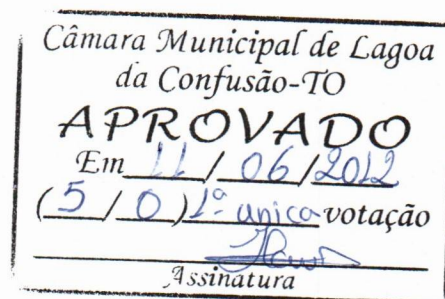 Câmara Municipal de Lagoa
da Confusão-TO
APROVADO
Em 11 / 06 / 2012
( 5 / 0 ) 1ª unica votação
Assinatura